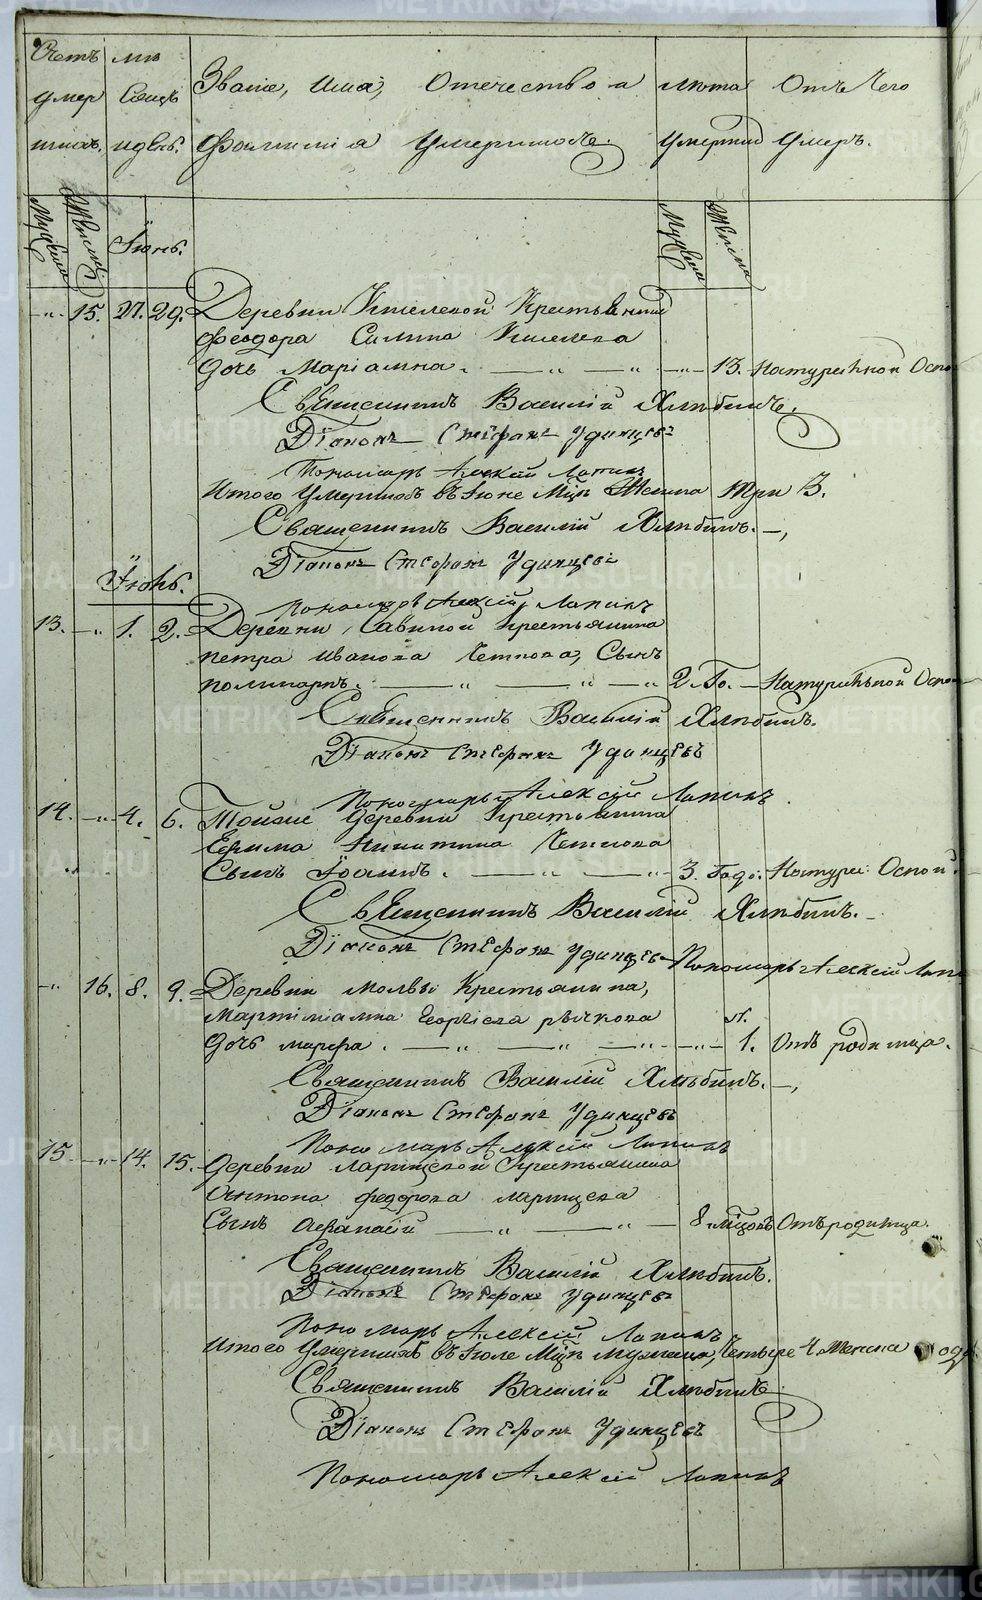 Счетъ умершихъ. Мѣсяцъ и день. Званіе, Имя, Отечество и Фамилія умершихъ. Лѣта умершихъ Отъ Чего умеръ.
Мужеска Женска Іюнь. Мужеска Женска
15. 27. 29. Деревни Киселевой Крестьянина
Феодора Силина Киселева
дочь Маріамна. 13. Натуральной Оспой
Священникъ Василій Хлѣбинъ.
Діаконъ Стефанъ Удинцевъ
Пономарь Алексій Лапинъ
Итого умершихъ въ Іюне Мцѣ Женска Три 3.
Священникъ Василій Хлѣбинъ.
Діаконъ Стефанъ Удинцевъ
Пономарь Алексій Лапинъ
13. 1. 2. Деревни Савиной Крестьянина
Петра Иванова Сынъ
2. Го. Натуральной Оспой
Священникъ Василій Хлѣбинъ.
Діаконъ Стефанъ Удинцевъ
Пономарь Алексій Лапинъ
14. 4. 6. Тойже Деревни Крестьянина
Никитина
Сынъ Іоаннъ. 3. Года. Натура: Оспой.
Священникъ Василій Хлѣбинъ.
Діаконъ Стефанъ Удинцевъ Пономарь Алексій Лапинъ
16. 8. 9. Деревни Молвы Крестьянина,
Мартиміана Георгіева
дочь Марфа. 1. Отъ родимца.
Священникъ Василій Хлѣбинъ.
Діаконъ Стефанъ Удинцевъ
Пономарь Алексій Лапинъ
15 14. 15. деревни Ларищевой Крестьянина
Антона Федорова Ларищева
Сынъ Афанасій 8 мцовъ Отъ родимца.
Священникъ Василій Хлѣбинъ.
Діаконъ Стефанъ Удинцевъ
Пономарь Алексій Лапинъ
Итого Умершихъ въ Іюле Мцѣ Мужеска, Четыре 4. Женска
Священникъ Василій Хлѣбинъ
Діаконъ Стефанъ Удинцевъ
Пономарь Алексій Лапинъ
METRIKI.GASO-URAL.RU